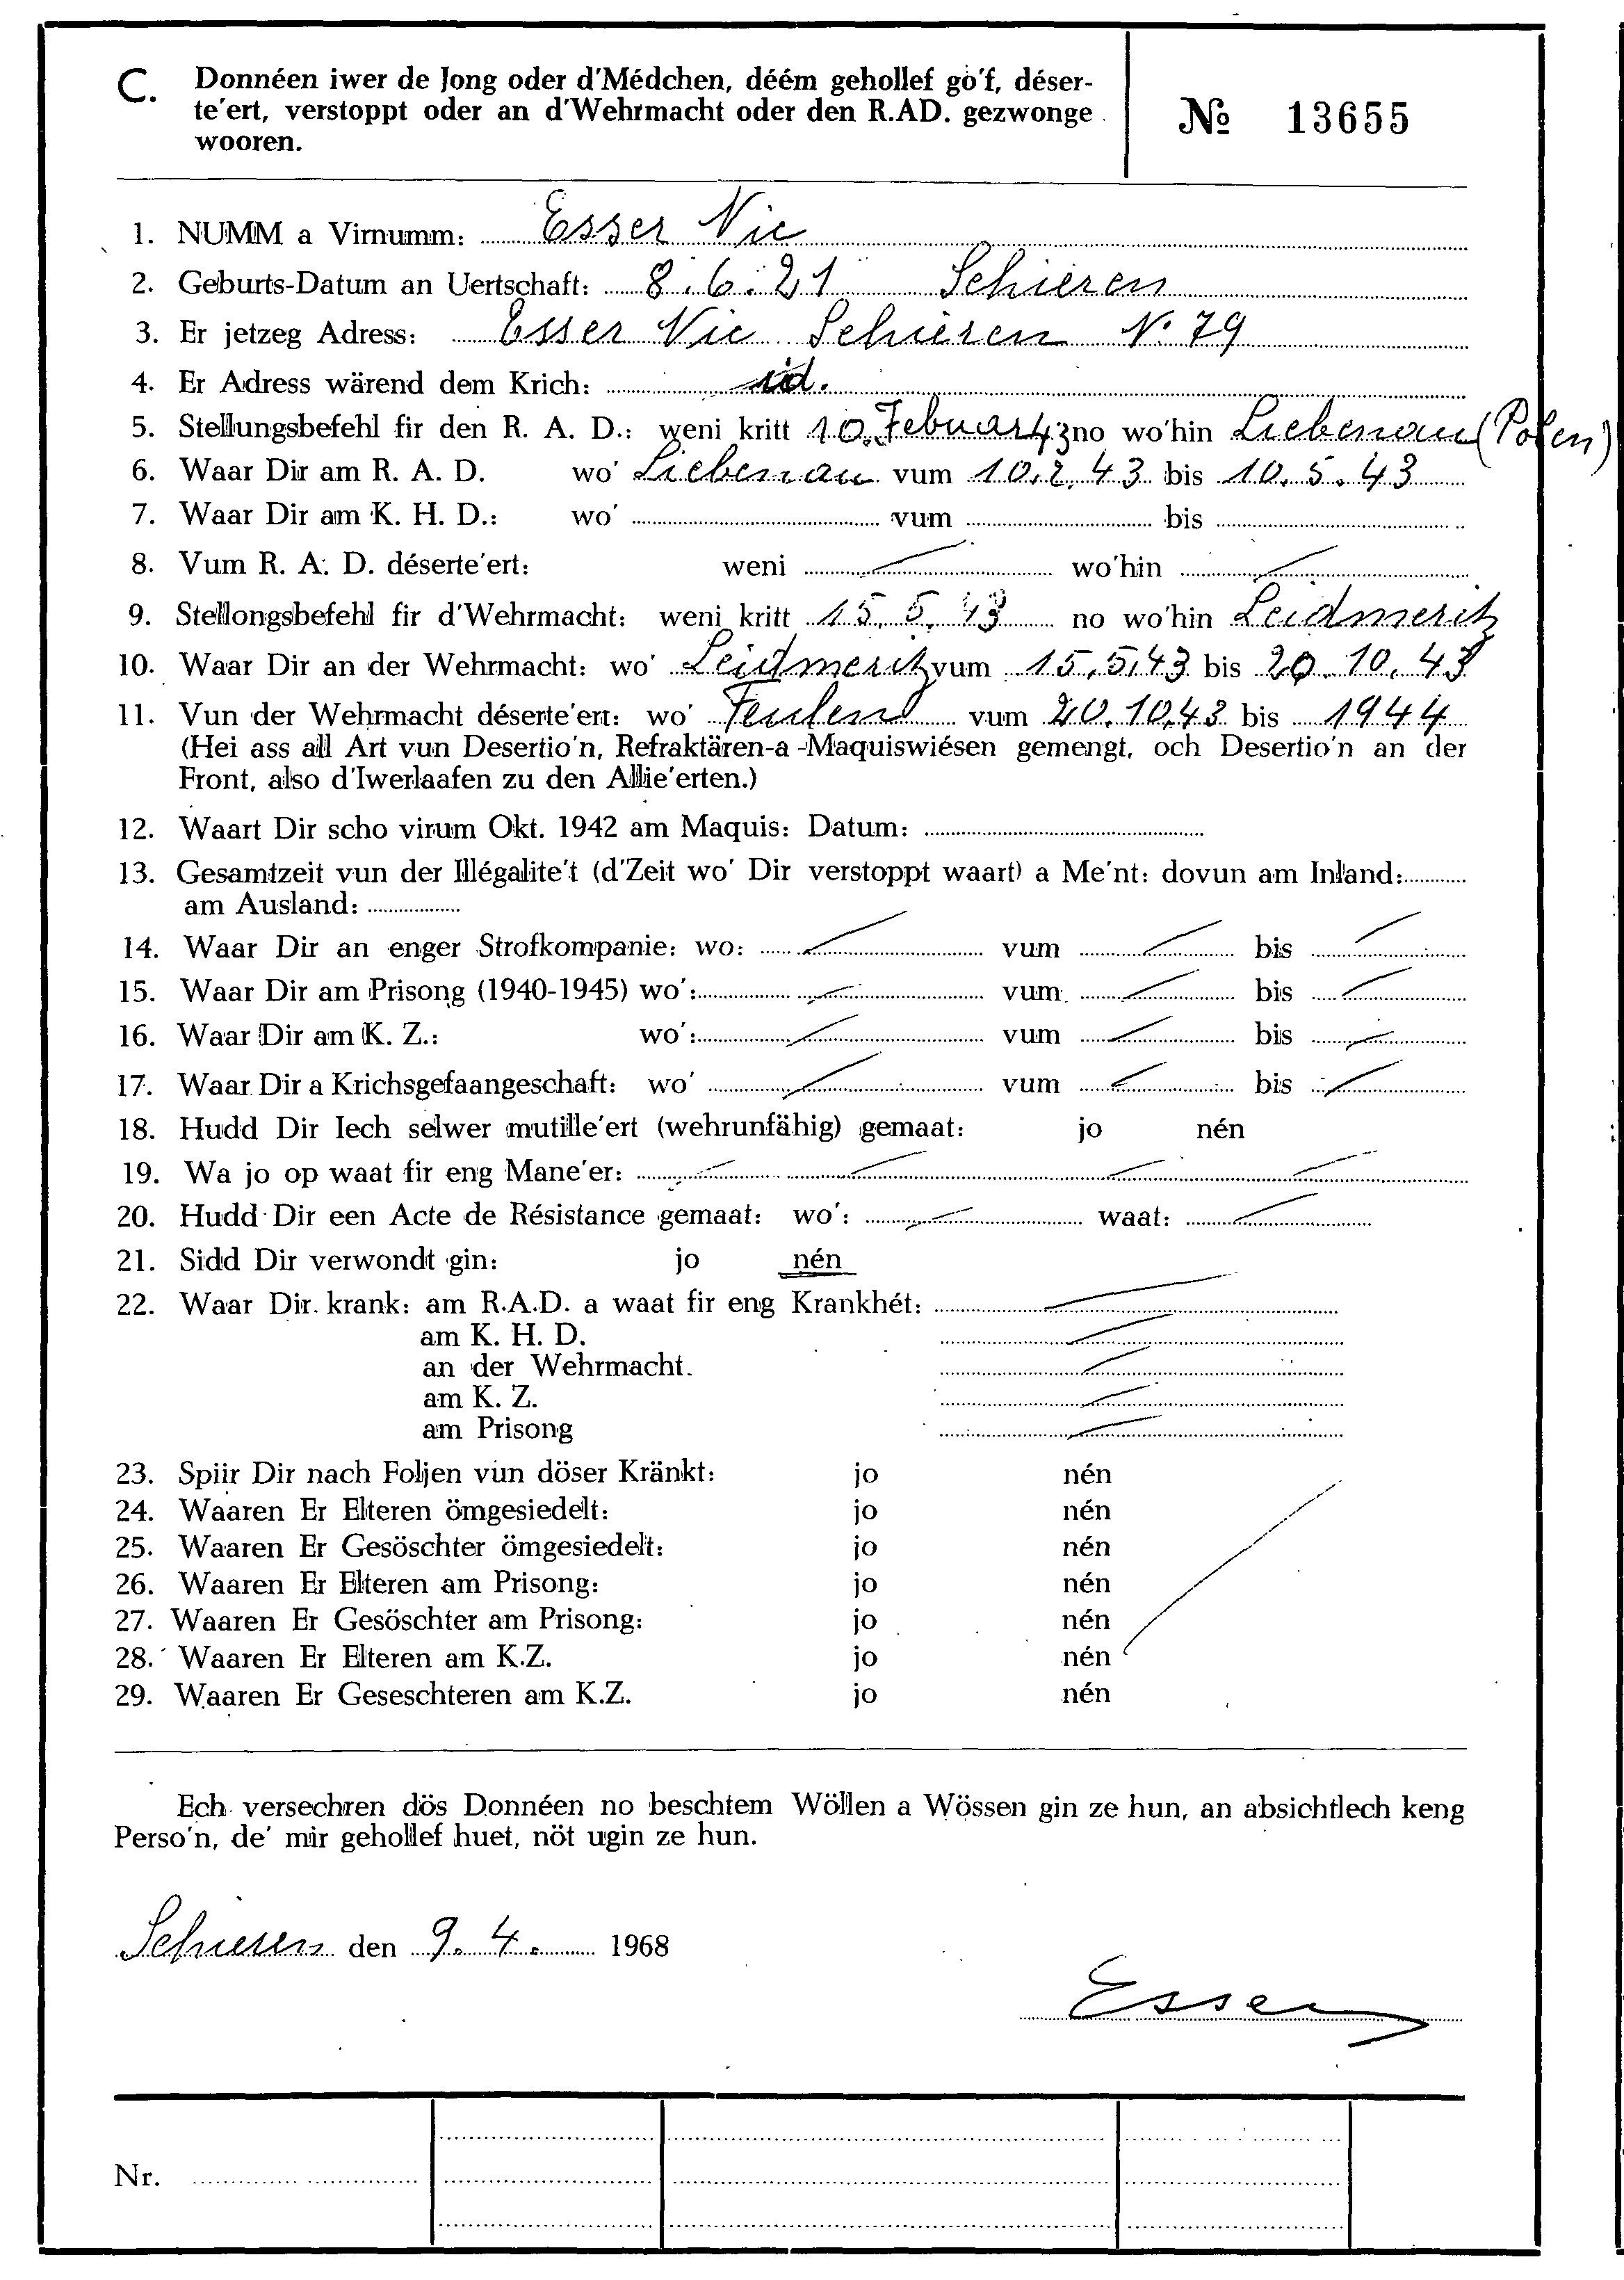 C. Donnéen iwer de Jong oder d'Médchen, déém gehollef go'f, déser-
te'ert, verstoppt oder an d'Wehrmacht oder den R.AD. gezwonge
wooren.
№ 13655
1. NUMM a Virnumm: Esser Nic
2. Geburts-Datum an Uertschaft: 8.6.21 Schieren
3. Er jetzeg Adress: Esser Nic Schieren N° 79
4. Er Adress wärend dem Krich: id.
5. Stellungsbefehl fir den R. A. D.: weni kritt 10. Februar 43 no wo'hin Liebenau (Polen)
6. Waar Dir am R. A. D. wo' Liebenau vum 10.2.43 bis 10.5.43
7. Waar Dir am K. H. D.: wo' vum bis
8. Vum R. A. D. déserte'ert: weni wo'hin
9. Stellongsbefehl fir d'Wehrmacht: weni kritt 15.5.43 no wo'hin Leidmeritz
10. Waar Dir an der Wehrmacht: wo' Leidmeritz vum 15.5.43 bis 20.10.43
11. Vun der Wehrmacht déserte'ert: wo' Feulen vum 20.10.43 bis 1944
(Hei ass all Art vun Desertio'n, Refraktären-a -Maquiswiésen gemengt, och Desertio'n an der
Front, also d'Iwerlaafen zu den Allie'erten.)
12. Waart Dir scho virum Okt. 1942 am Maquis: Datum:
13. Gesamtzeit vun der Illégalite't (d'Zeit wo' Dir verstoppt waart) a Me'nt: dovun am Inland:
am Ausland:
14. Waar Dir an enger Strofkompanie: wo: vum bis
15. Waar Dir am Prisong (1940-1945) wo': vum bis
16. Waar Dir am K. Z.: wo': vum bis
17. Waar Dir a Krichsgefaangeschaft: wo' vum bis
18. Hudd Dir Iech selwer mutille'ert (wehrunfähig) gemaat: jo nén
19. Wa jo op waat fir eng Mane'er:
20. Hudd Dir een Acte de Résistance gemaat: wo': waat:
21. Sidd Dir verwondt gin: jo nén
22. Waar Dir krank: am R.A.D. a waat fir eng Krankhét:
am K. H. D.
an der Wehrmacht.
am K. Z.
am Prisong
23. Spiir Dir nach Foljen vun döser Kränkt: jo nén
24. Waaren Er Elteren ömgesiedelt: jo nén
25. Waaren Er Gesöschter ömgesiedelt: jo nén
26. Waaren Er Elteren am Prisong: jo nén
27. Waaren Er Gesöschter am Prisong: jo nén
28. Waaren Er Elteren am K.Z. jo nén
29. Waaren Er Geseschteren am K.Z. jo nén
Ech versechren dös Donnéen no beschtem Wöllen a Wössen gin ze hun, an absichtlech keng
Perso'n, de' mir gehollef huet, nöt ugin ze hun.
Schieren den 9. 4. 1968
Esser
Nr.